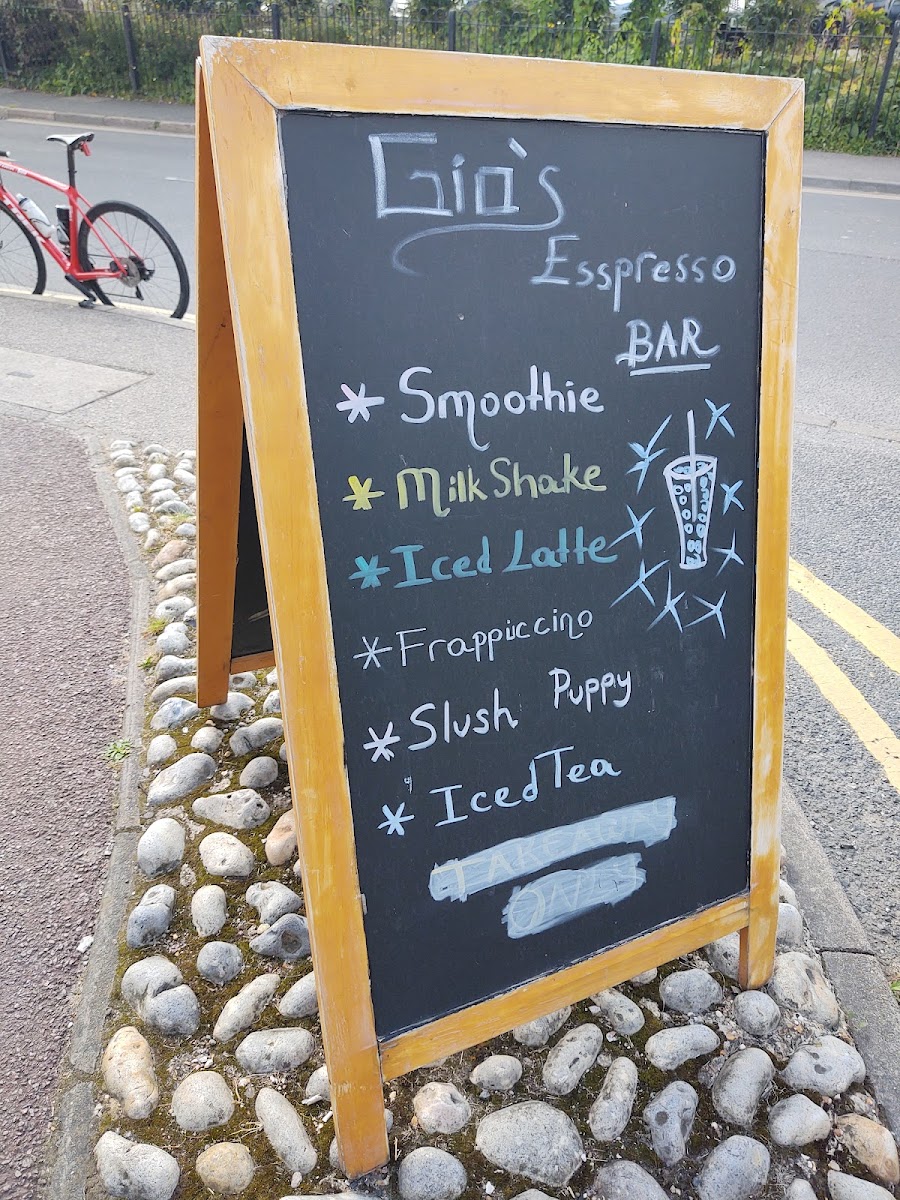 Gio's
Esspresso
BAR
* Smoothie
* MilkShake
* Iced Latte
* Frappiccino
* Slush Puppy
* Iced Tea
TAKEAWAY
ONLY